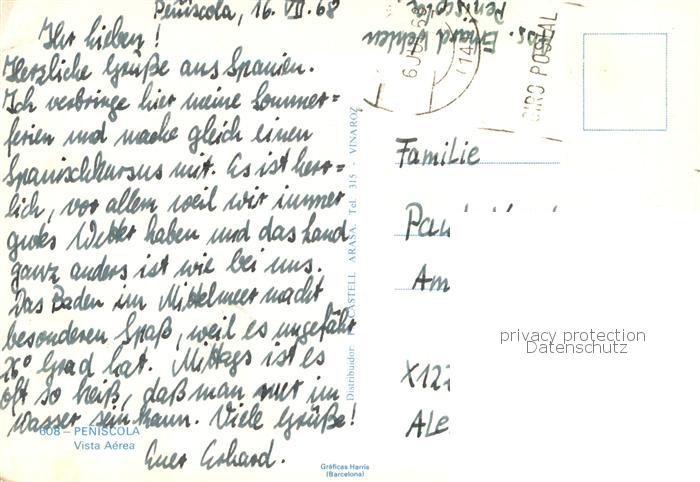 Peñiscola, 16. VII. 68
Ihr Lieben!
Herzliche Grüße aus Spanien.
Ich verbringe hier meine Sommer=
ferien und mache gleich einen
Spanischkursus mit. Es ist herr=
lich, vor allem weil wir immer
gutes Wetter haben und das Land
ganz anders ist wie bei uns.
Das Baden im Mittelmeer macht
besonderen Spaß, weil es ungefähr
Grad hat. Mittags ist es
oft so heiß, daß man nur im
Wasser sein kann. Viele Grüße!
Euer Erhard.
608 – PEÑISCOLA
Vista Aérea
Distribuidor: CASTELL ARASA. Tel. 315 - VINAROZ
Gráficas Harris
(Barcelona)
Abs. Erhard
Peniscola
GIRO POSTAL
Familie
Pau
Am
X12
Ale
privacy protection
Datenschutz